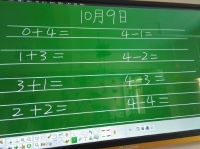 10月9日
0+4= 4-1=
1+3= 4-2=
3+1= 4-3=
2+2= 4-4=